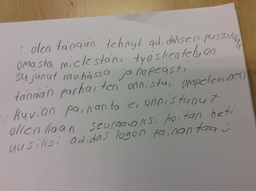 olen tänään tehnyt ad.dahsen pussukka
omasta mielestäni työskentelyon
sujunut rauhassa ja nopeasti
tänään parhaiten onnistui ompeleminen
kuvion painanta ei onnistunut
ollenkaan seuraavaksi hoitan heti
uusiksi adidas logon painantaa